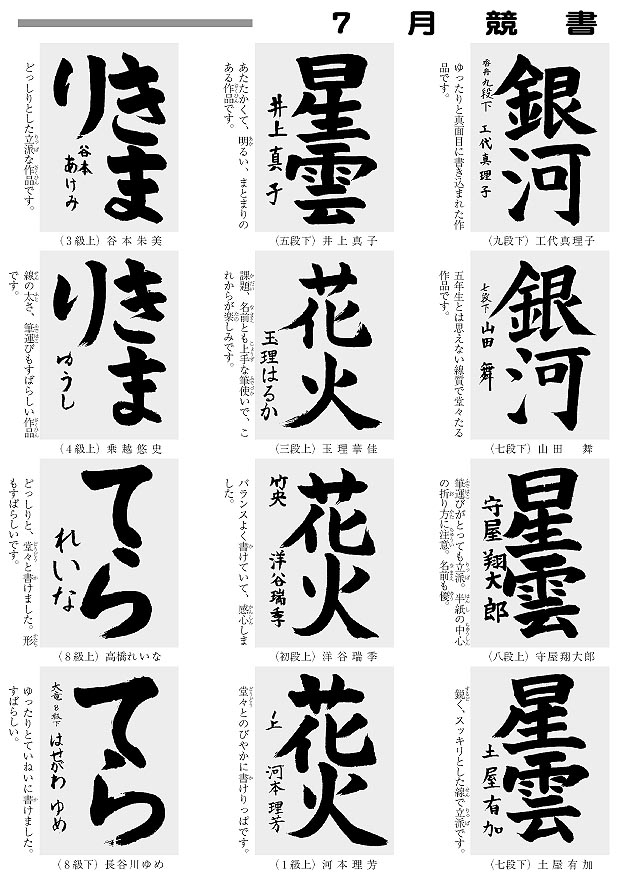 7月競書
銀河
香舟九段下 工代真理子
ゆったりと真面目に書き込まれた作
品です。
（九段下）工代真理子
銀河
七段下 山田 舞
五年生とは思えない線質で堂々たる
作品です。
（七段下）山田 舞
星雲
守屋 翔太郎
筆運びがとっても立派。半紙の中心
の折り方に注意。名前も優。
（八段上）守屋翔大郎
星雲
土屋有加
鋭く、スッキリとした線で立派です。
（七段下）土屋有加
星雲
井上真子
あたたかくて、明るい、まとまりの
ある作品です。
（五段下）井上真子
花火
玉理はるか
課題、名前とも上手な筆使いで、こ
れからが楽しみです。
（三段上）玉理華佳
花火
竹央
洋谷瑞季
バランスよく書けていて、感心しま
した。
（初段上）洋谷瑞季
花火
河本理芳
堂々とのびやかに書けりっぱです。
（1級上）河本理芳
きまり
谷本あけみ
どっしりとした立派な作品です。
（3級上）谷本朱美
きまり
ゆうし
線の太さ、筆運びもすばらしい作品
です。
（4級上）乗越悠史
てら
れいな
どっしりと、堂々と書けました。形
もすばらしいです。
（8級上）高橋れいな
てら
大竜8級下 はせがわ ゆめ
ゆったりとていねいに書けました。
すばらしい。
（8級下）長谷川ゆめ